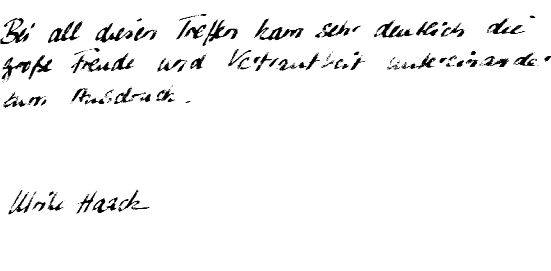 Bei all diesen Treffen kam sehr deutlich die
große Freude und Vertrautheit untereinander
zum Ausdruck.
Ulrike Haack